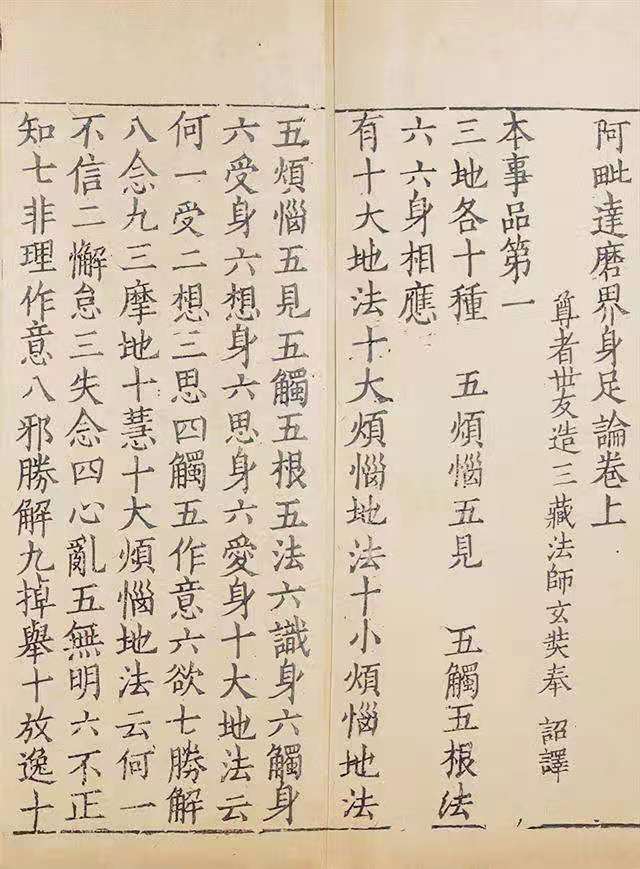 阿毗達磨界身足論卷上
尊者世友造三藏法師玄奘奉 詔譯
本事品第一
三地各十種 五煩惱五見 五觸五根法
六六身相應
有十大地法十大煩惱地法十小煩惱地法
五煩惱五見五觸五根五法六識身六觸身
六受身六想身六思身六愛身十大地法云
何一受二想三思四觸五作意六欲七勝解
八念九三摩地十慧十大煩惱地法云何一
不信二懈怠三失念四心亂五無明六不正
知七非理作意八邪勝解九掉舉十放逸十